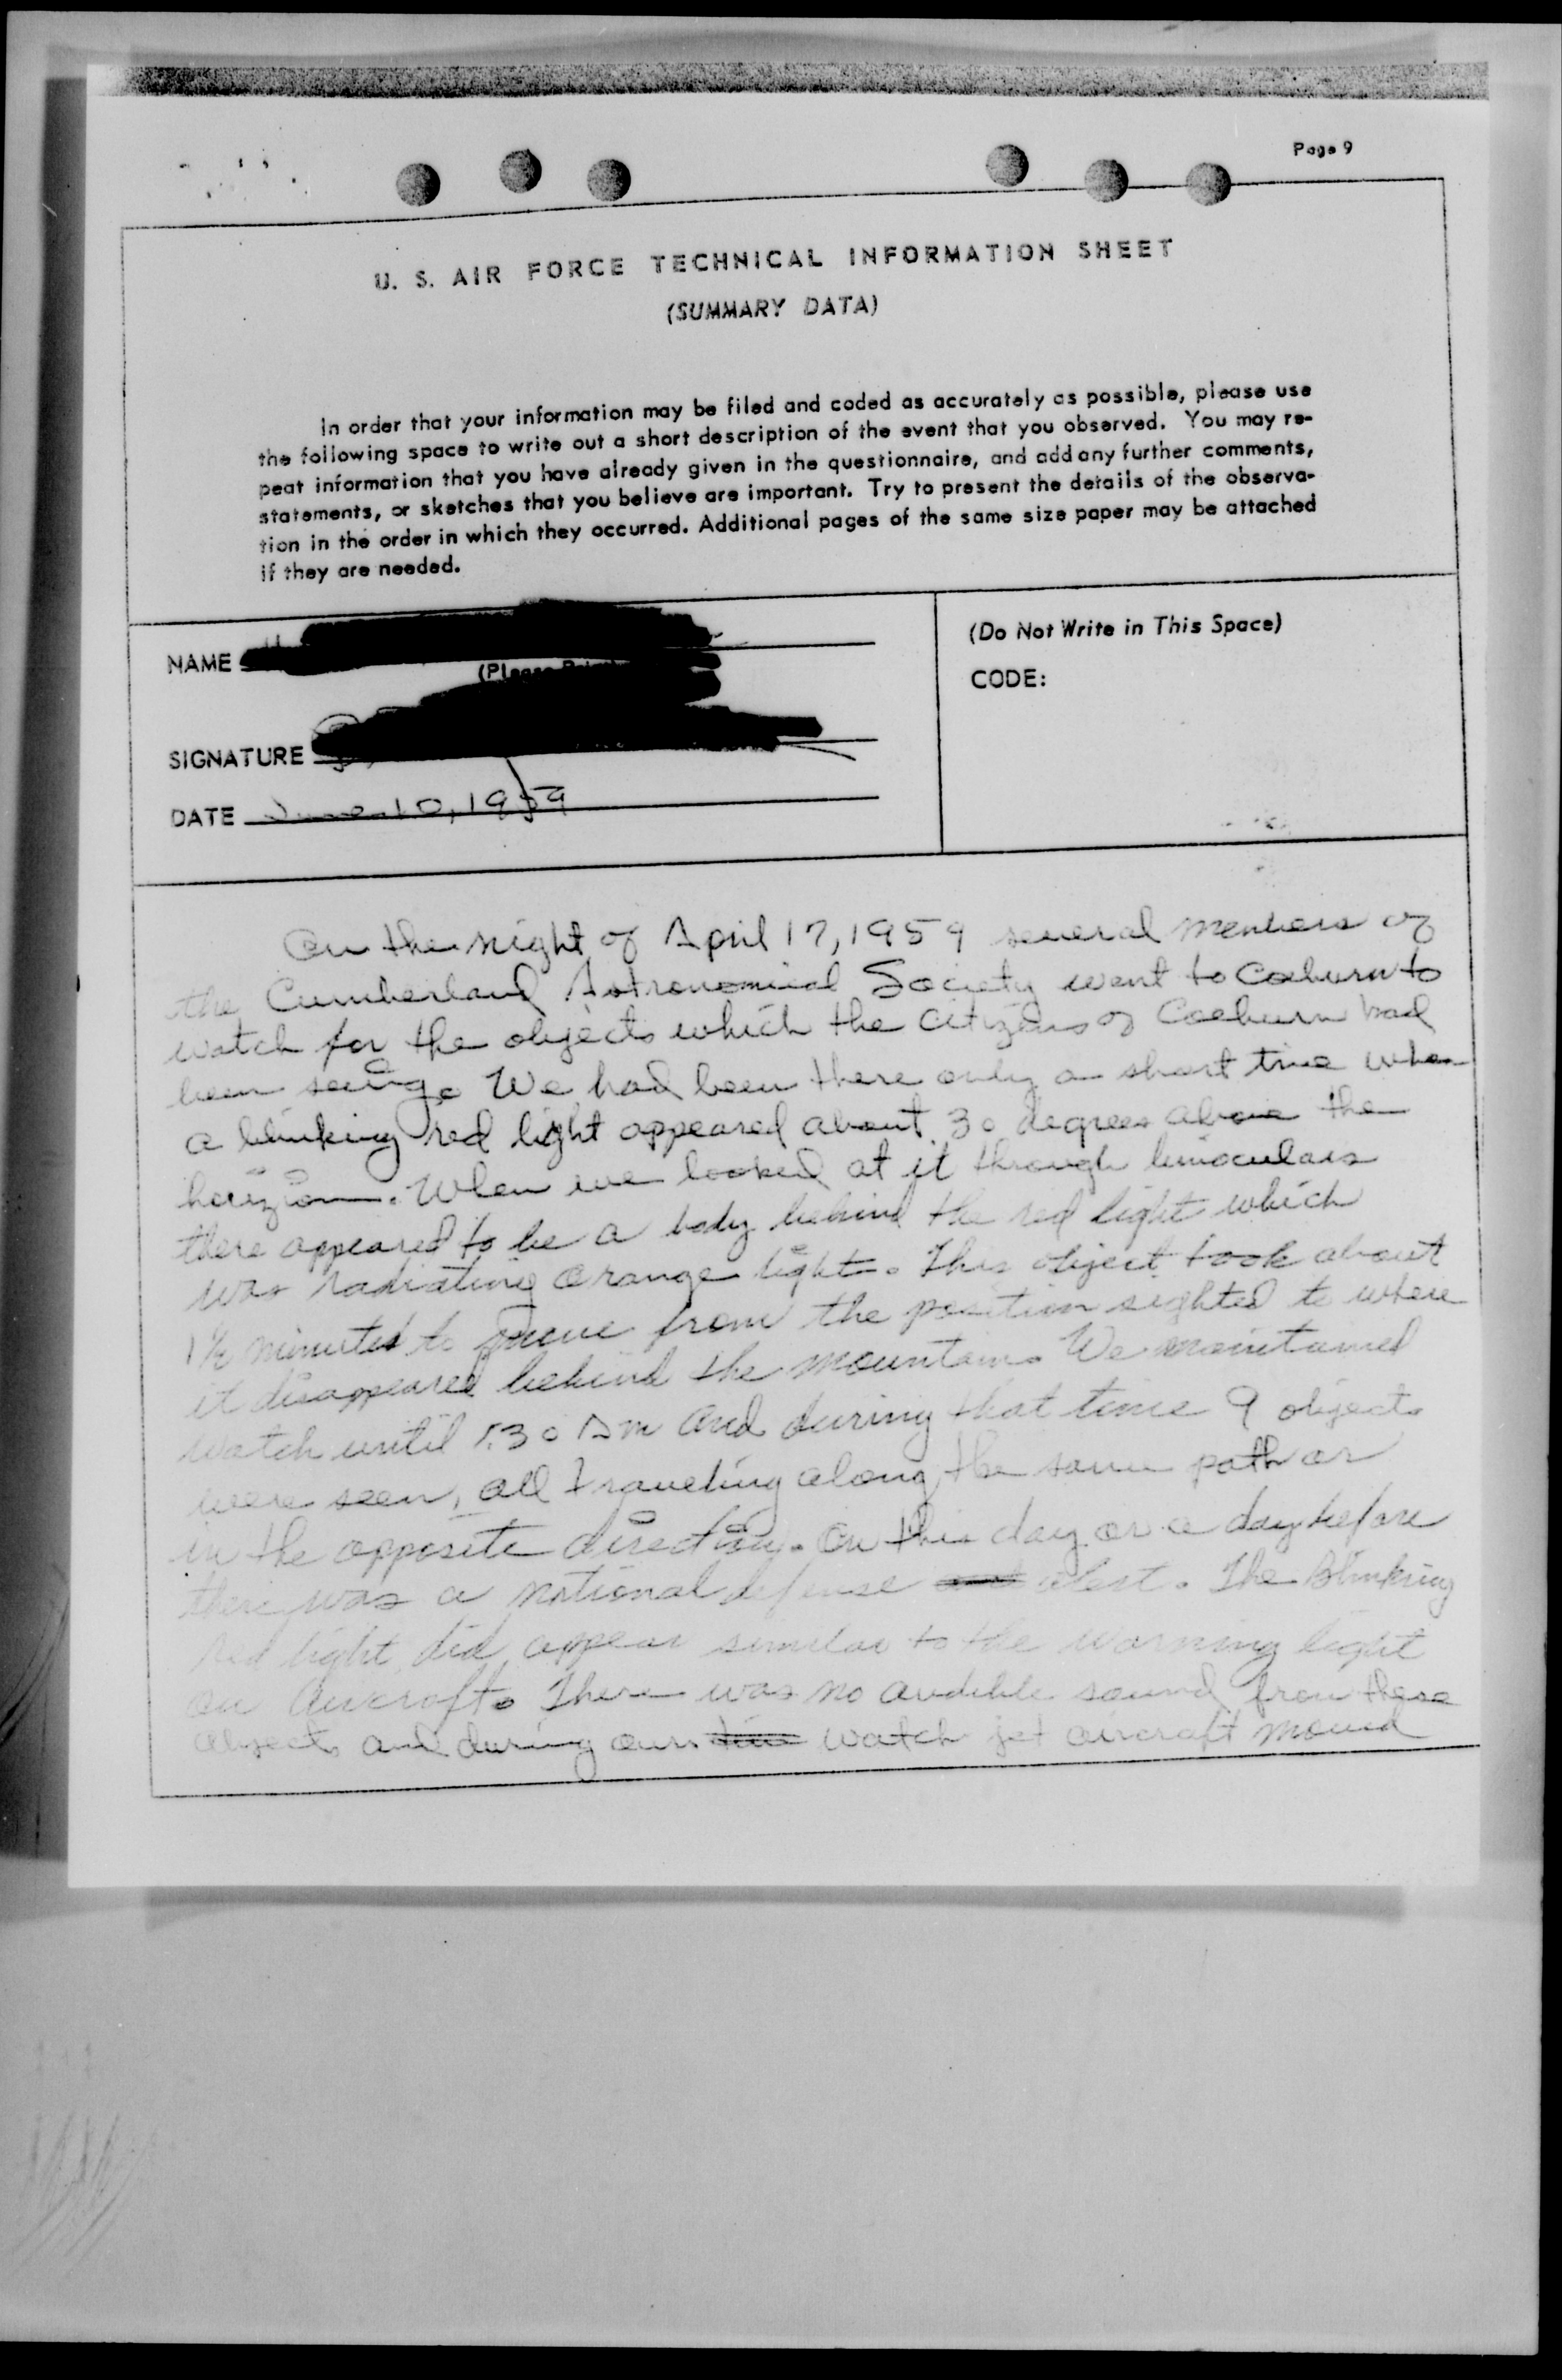 Page 9
U. S. AIR FORCE TECHNICAL INFORMATION SHEET
(SUMMARY DATA)
In order that your information may be filed and coded as accurately as possible, please use
the following space to write out a short description of the event that you observed. You may re-
peat information that you have already given in the questionnaire, and add any further comments,
statements, or sketches that you believe are important. Try to present the details of the observa-
tion in the order in which they occurred. Additional pages of the same size paper may be attached
if they are needed.
NAME
(Please
SIGNATURE
DATE June 10, 1959
(Do Not Write in This Space)
CODE:
On the night of April 17, 1959 several members of
the Cumberland Astronomical Society went to Coeburn to
watch for the objects which the citizens of Coeburn had
been seeing. We had been there only a short time when
a blinking red light appeared about 30 degrees above the
horizon. When we looked at it through binoculars
there appeared to be a body behind the red light which
was radiating orange light. This object took about
1½ minutes to move from the position sighted to where
it disappeared behind the mountain. We maintained
watch until 1:30 AM and during that time 9 objects
were seen, all traveling along the same path or
in the opposite direction. On this day or a day before
there was a national defense alert. The Blinking
red light did appear similar to the warning light
on aircraft. There was no audible sound from these
objects and during our watch jet aircraft moved